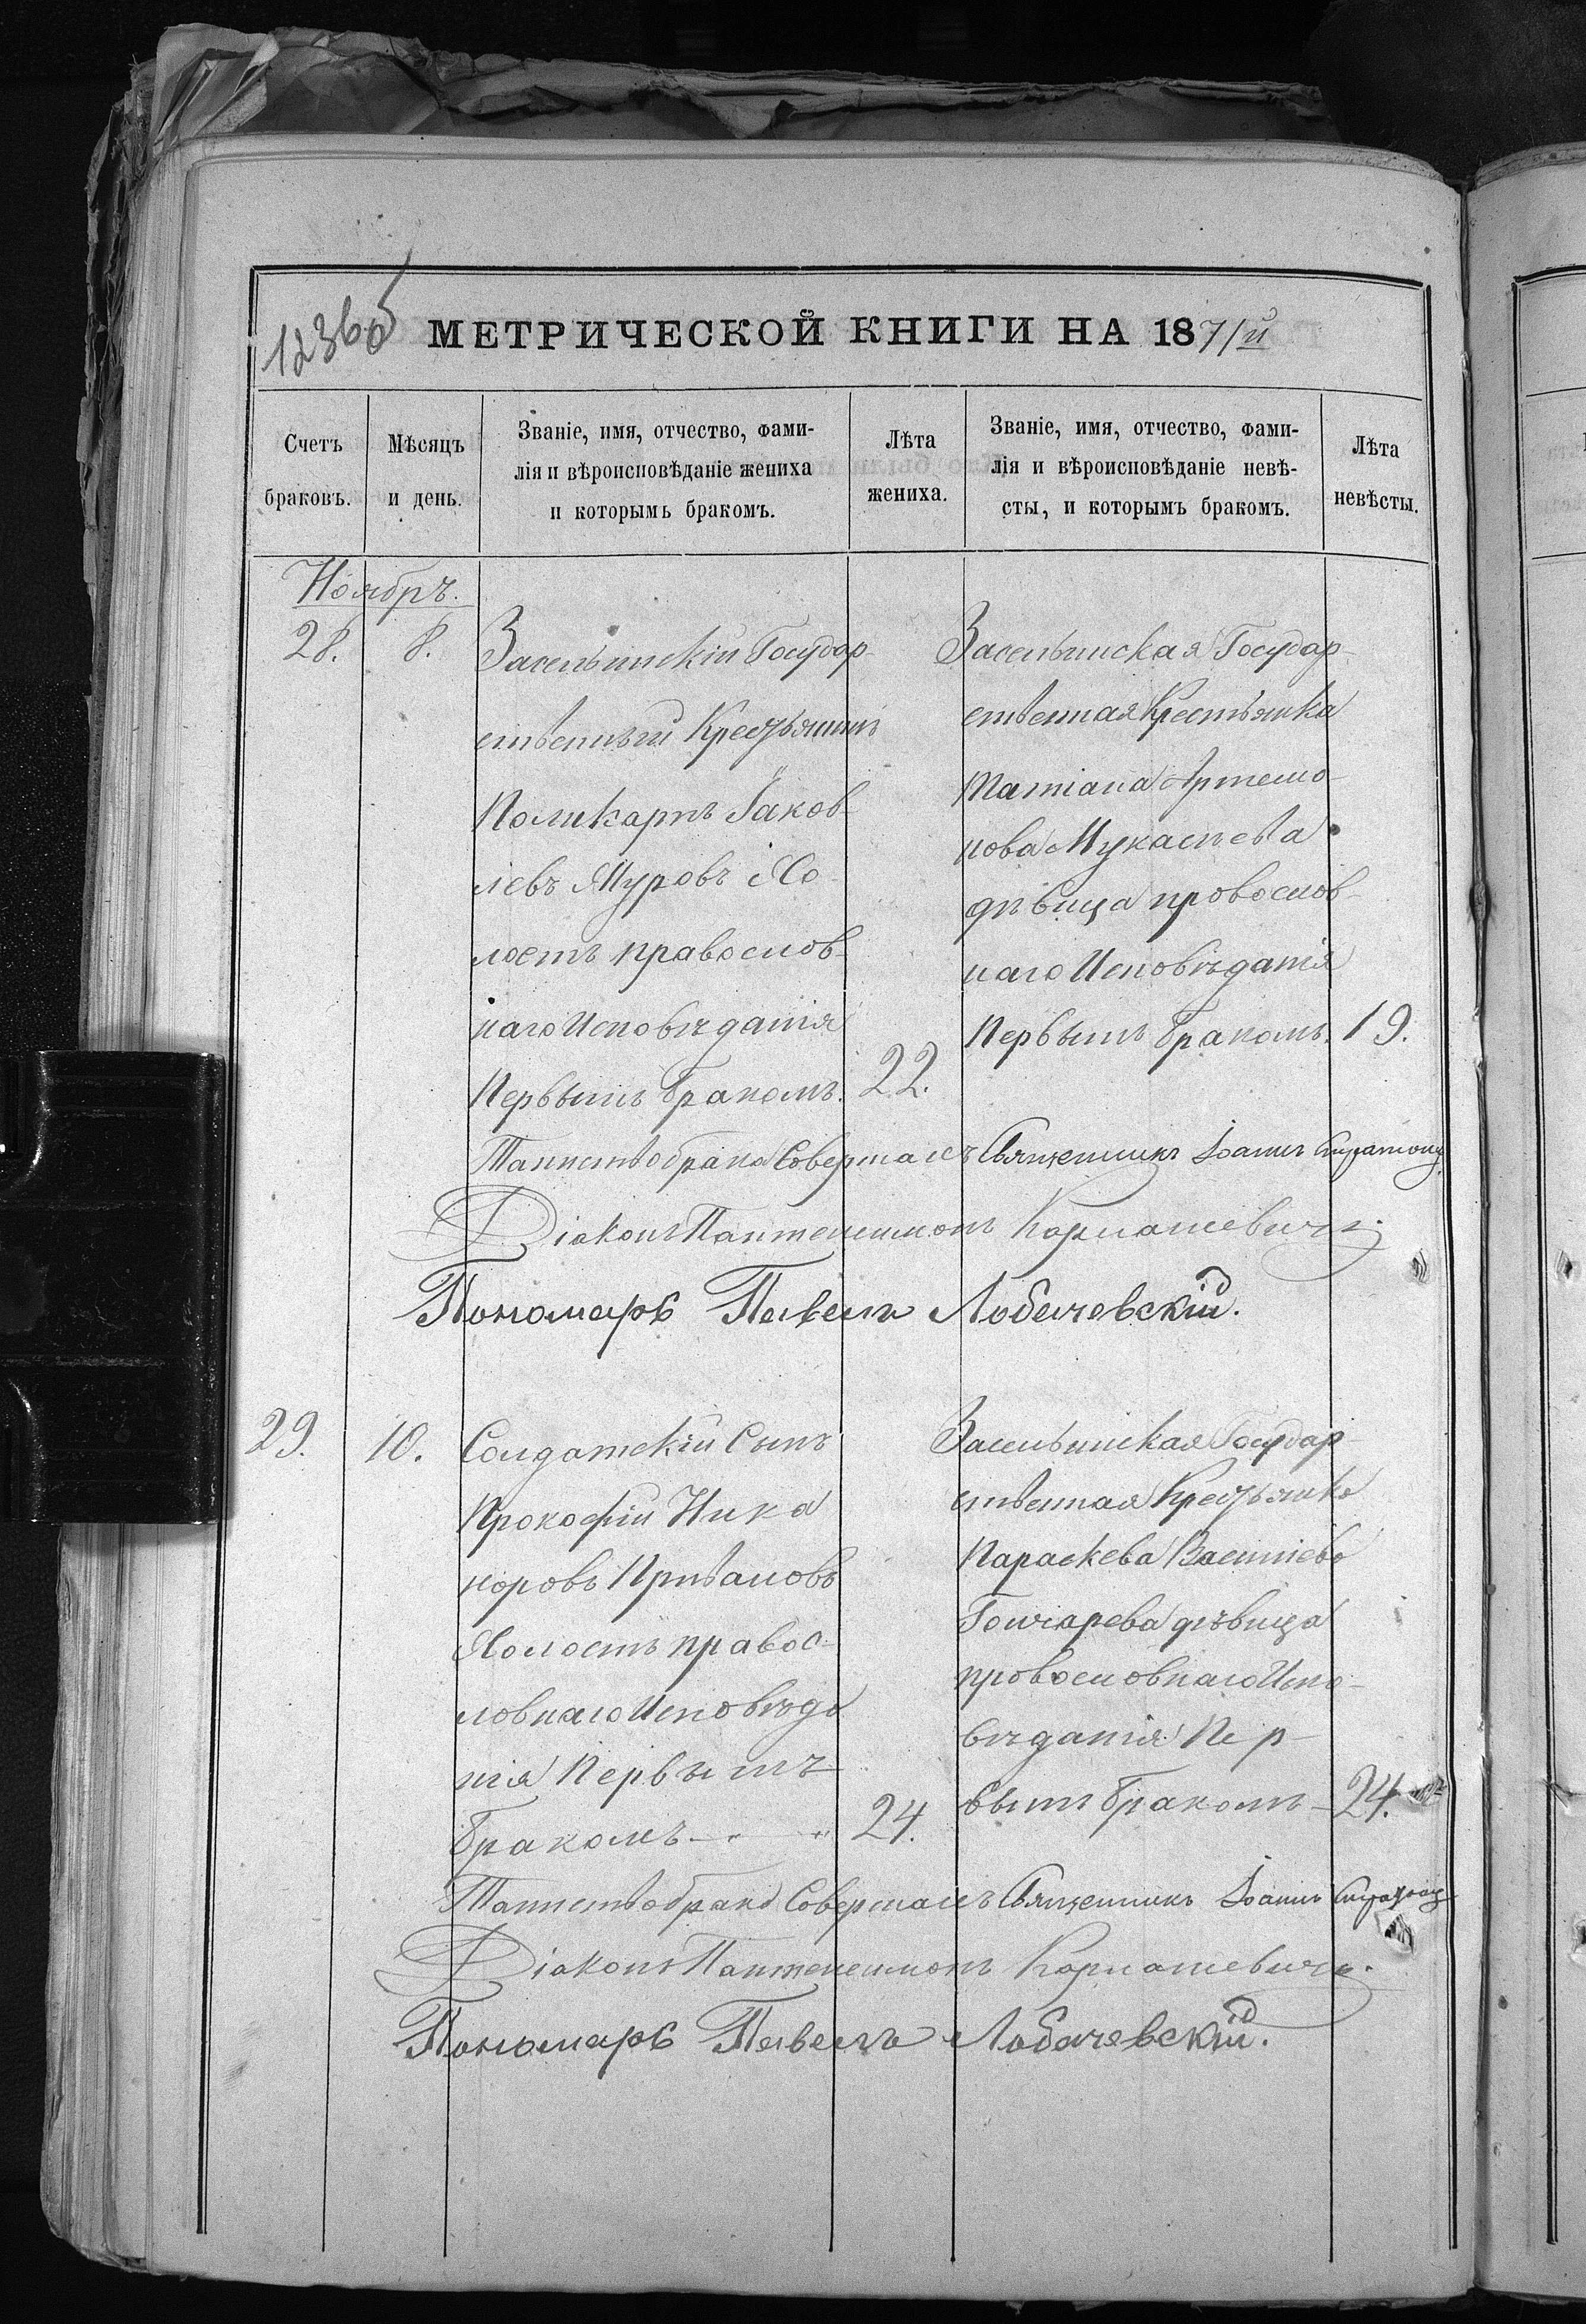 1236об
МЕТРИЧЕСКОЙ КНИГИ НА 1871й
Счетъ
браковъ.
Мѣсяцъ
и день.
Званіе, имя, отчество, фами-
лія и вѣроисповѣданіе жениха
и которымъ бракомъ.
Лѣта
жениха.
Званіе, имя, отчество, фами-
лія и вѣроисповѣданіе невѣ-
сты, и которымъ бракомъ.
Лѣта
невѣсты.
Ноябрь.
28.
8.
Засельинскій Государ-
ственный Крестьянинъ
Поликарпъ Іаков-
левъ Муровъ Хо-
лостъ православ-
наго Исповѣданія
Первымъ бракомъ.
22.
Засельинская Государ-
ственная Крестьянка
Татіана Артемо-
нова
дѣвица православ-
наго Исповѣданія
Первымъ бракомъ.
19.
Таинство брака Совершалъ Священникъ Іоаннъ
Діаконъ Пантелеимонъ
Пономарь Павелъ Лобачевскій.
29.
10.
Солдатскій Сынъ
Прокофій Ника
норовъ
Холостъ правос-
лавнаго Исповѣда
нія Первымъ
бракомъ
24.
Засельинская Государ-
ственная Крестьянка
Параскева Василіева
Гончарева дѣвица
православнаго Испо-
вѣданія Пер-
вымъ бракомъ
24.
Таинство брака Совершалъ Священникъ Іоаннъ
Діаконъ Пантелеимонъ
Пономарь Павелъ Лобачевскій.